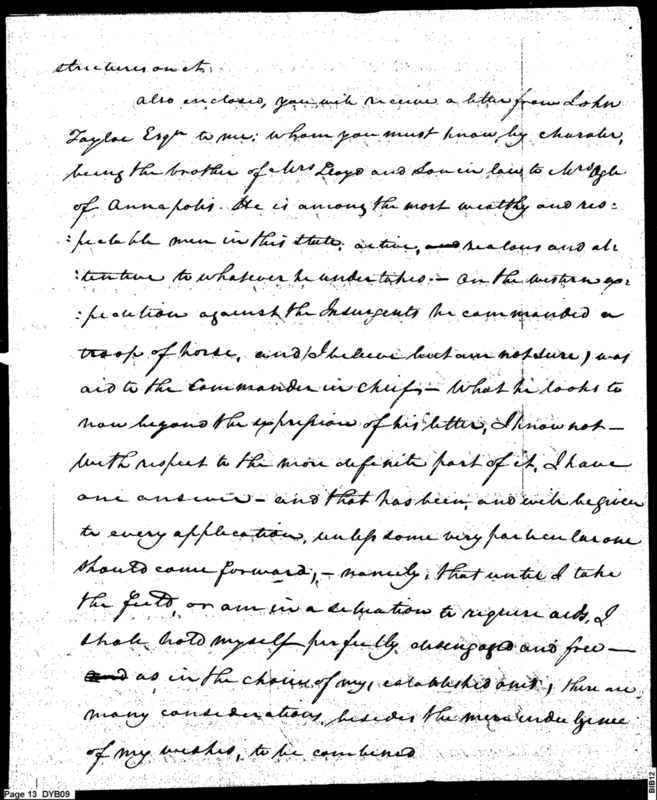 strictures on it.
Also enclosed, you will receive a letter from John
Tayloe Esqr to me; whom you must know, by charater,
being the brother of Mrs Lloyd and Son in law to Mrs Ogle
of Annapolis. He is among the most wealthy and res:
:pectable men in this state; active, and zealous and at:
:tentive to whatever he undertakes.— On the western ex:
:pedition against the Insurgents he commanded a
troop of horse, and (I believe but am not sure) was
aid to the Commander in chief.— What he looks to
now beyond the expression of his letter, I know not—
With respect to the more definite part of it, I have
one answer— and that has been, and will be given
to every application, unless some very particular one
should come forward;— namely; that until I take
the field, or am in a situation to require aids, I
shall hold myself perfectly disengaged and free—
and as, in the choice of my, established ones, there are
many considerations, besides the mere indulgence
of my wishes, to be combined
Page 13 DYB09
BIB12